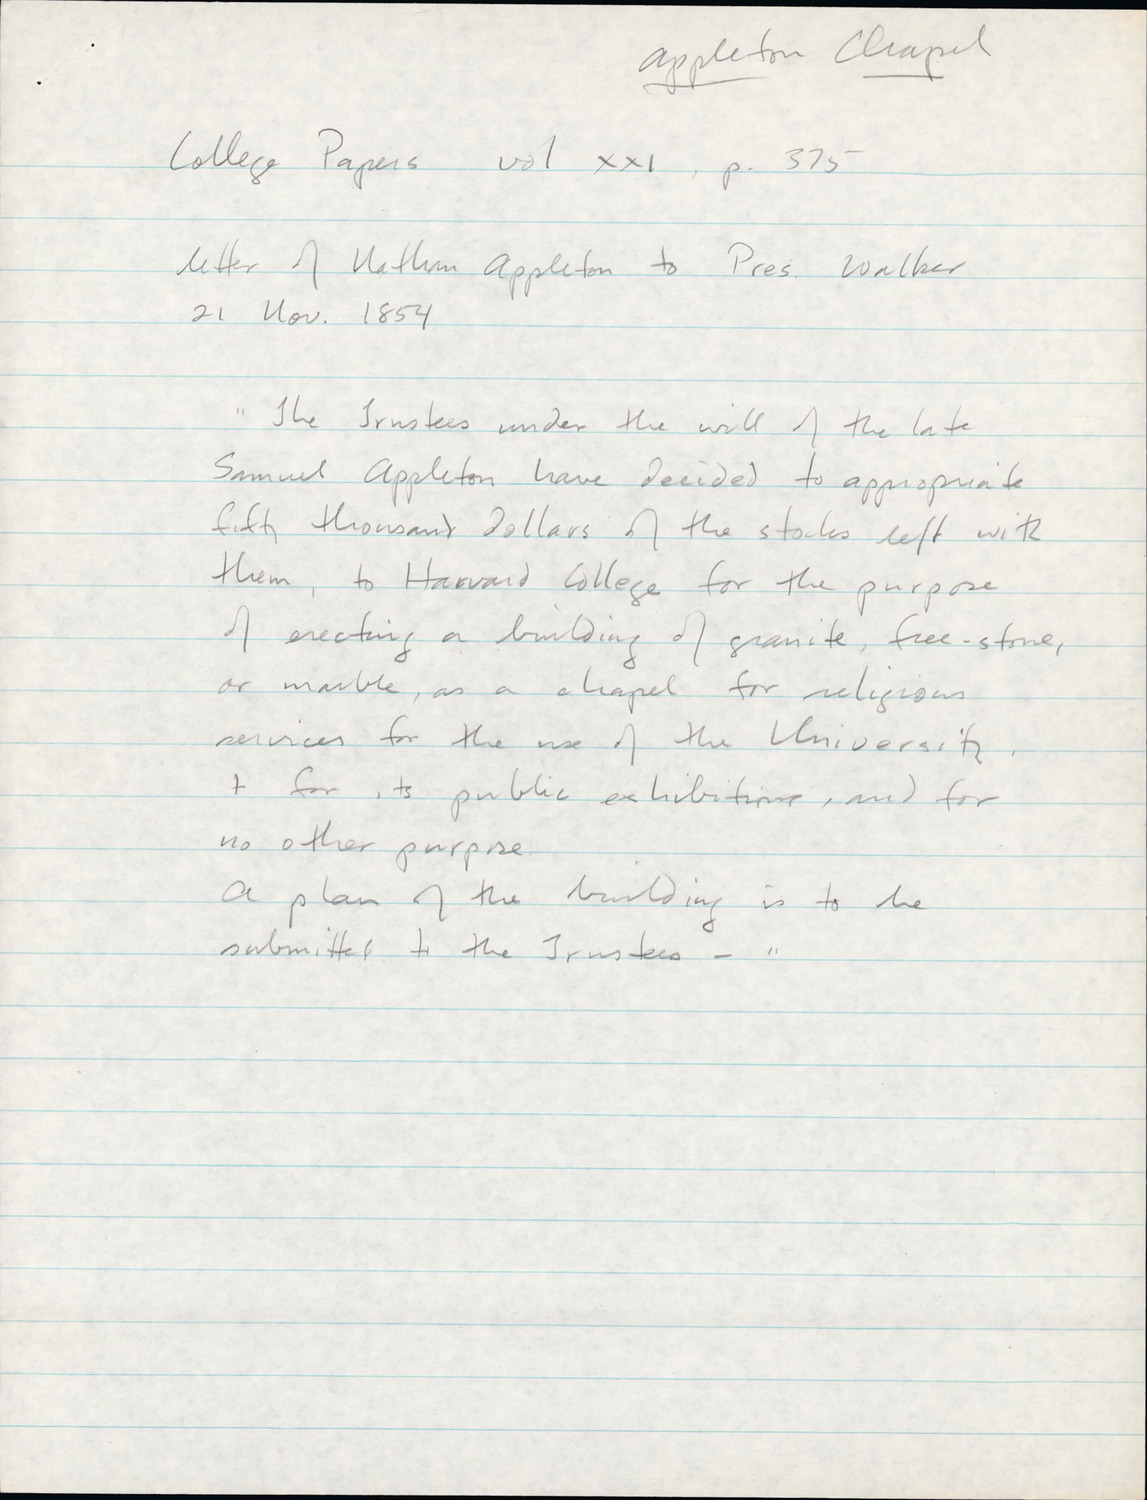 Appleton Chapel
College Papers vol XXI, p. 375
letter of Nathan Appleton to Pres. Walker
21 Nov. 1854
" The Trustees under the will of the late
Samuel Appleton have decided to appropriate
fifty thousand dollars of the stocks left with
them, to Harvard College for the purpose
of erecting a building of granite, free-stone,
or marble, as a chapel for religious
services for the use of the University,
+ for its public exhibitions, and for
no other purpose.
A plan of the building is to be
submitted to the Trustees - "